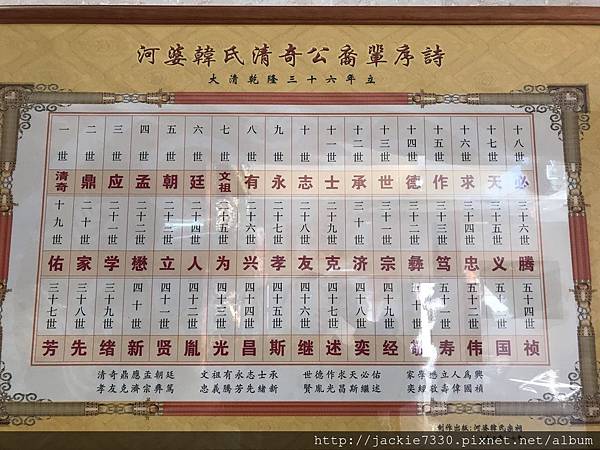 河婆韓氏清奇公裔輩序詩
大清乾隆三十六年立
一世 二世 三世 四世 五世 六世 七世 八世 九世 十世 十一世 十二世 十三世 十四世 十五世 十六世 十七世 十八世
清奇 鼎 应 孟 朝 廷 文祖 有 永 志 士 承 世 德 作 求 天 必
十九世 二十世 二十一世 二十二世 二十三世 二十四世 二十五世 二十六世 二十七世 二十八世 二十九世 三十世 三十一世 三十二世 三十三世 三十四世 三十五世 三十六世
佑 家 学 懋 立 人 为 兴 孝 友 克 济 宗 彝 笃 忠 义 腾
三十七世 三十八世 三十九世 四十世 四十一世 四十二世 四十三世 四十四世 四十五世 四十六世 四十七世 四十八世 四十九世 五十世 五十一世 五十二世 五十三世 五十四世
芳 先 绪 新 贤 胤 光 昌 斯 继 述 奕 经 敬 寿 伟 国 祯
清奇鼎應孟朝廷 文祖有永志士承 世德作求天必佑 家學懋立人為興
孝友克濟宗彝篤 忠義騰芳先緒新 賢胤光昌斯繼述 奕經敬壽偉國禎
制作出版:河婆韩氏宗祠
http://jackie7330.pixnet.net/album